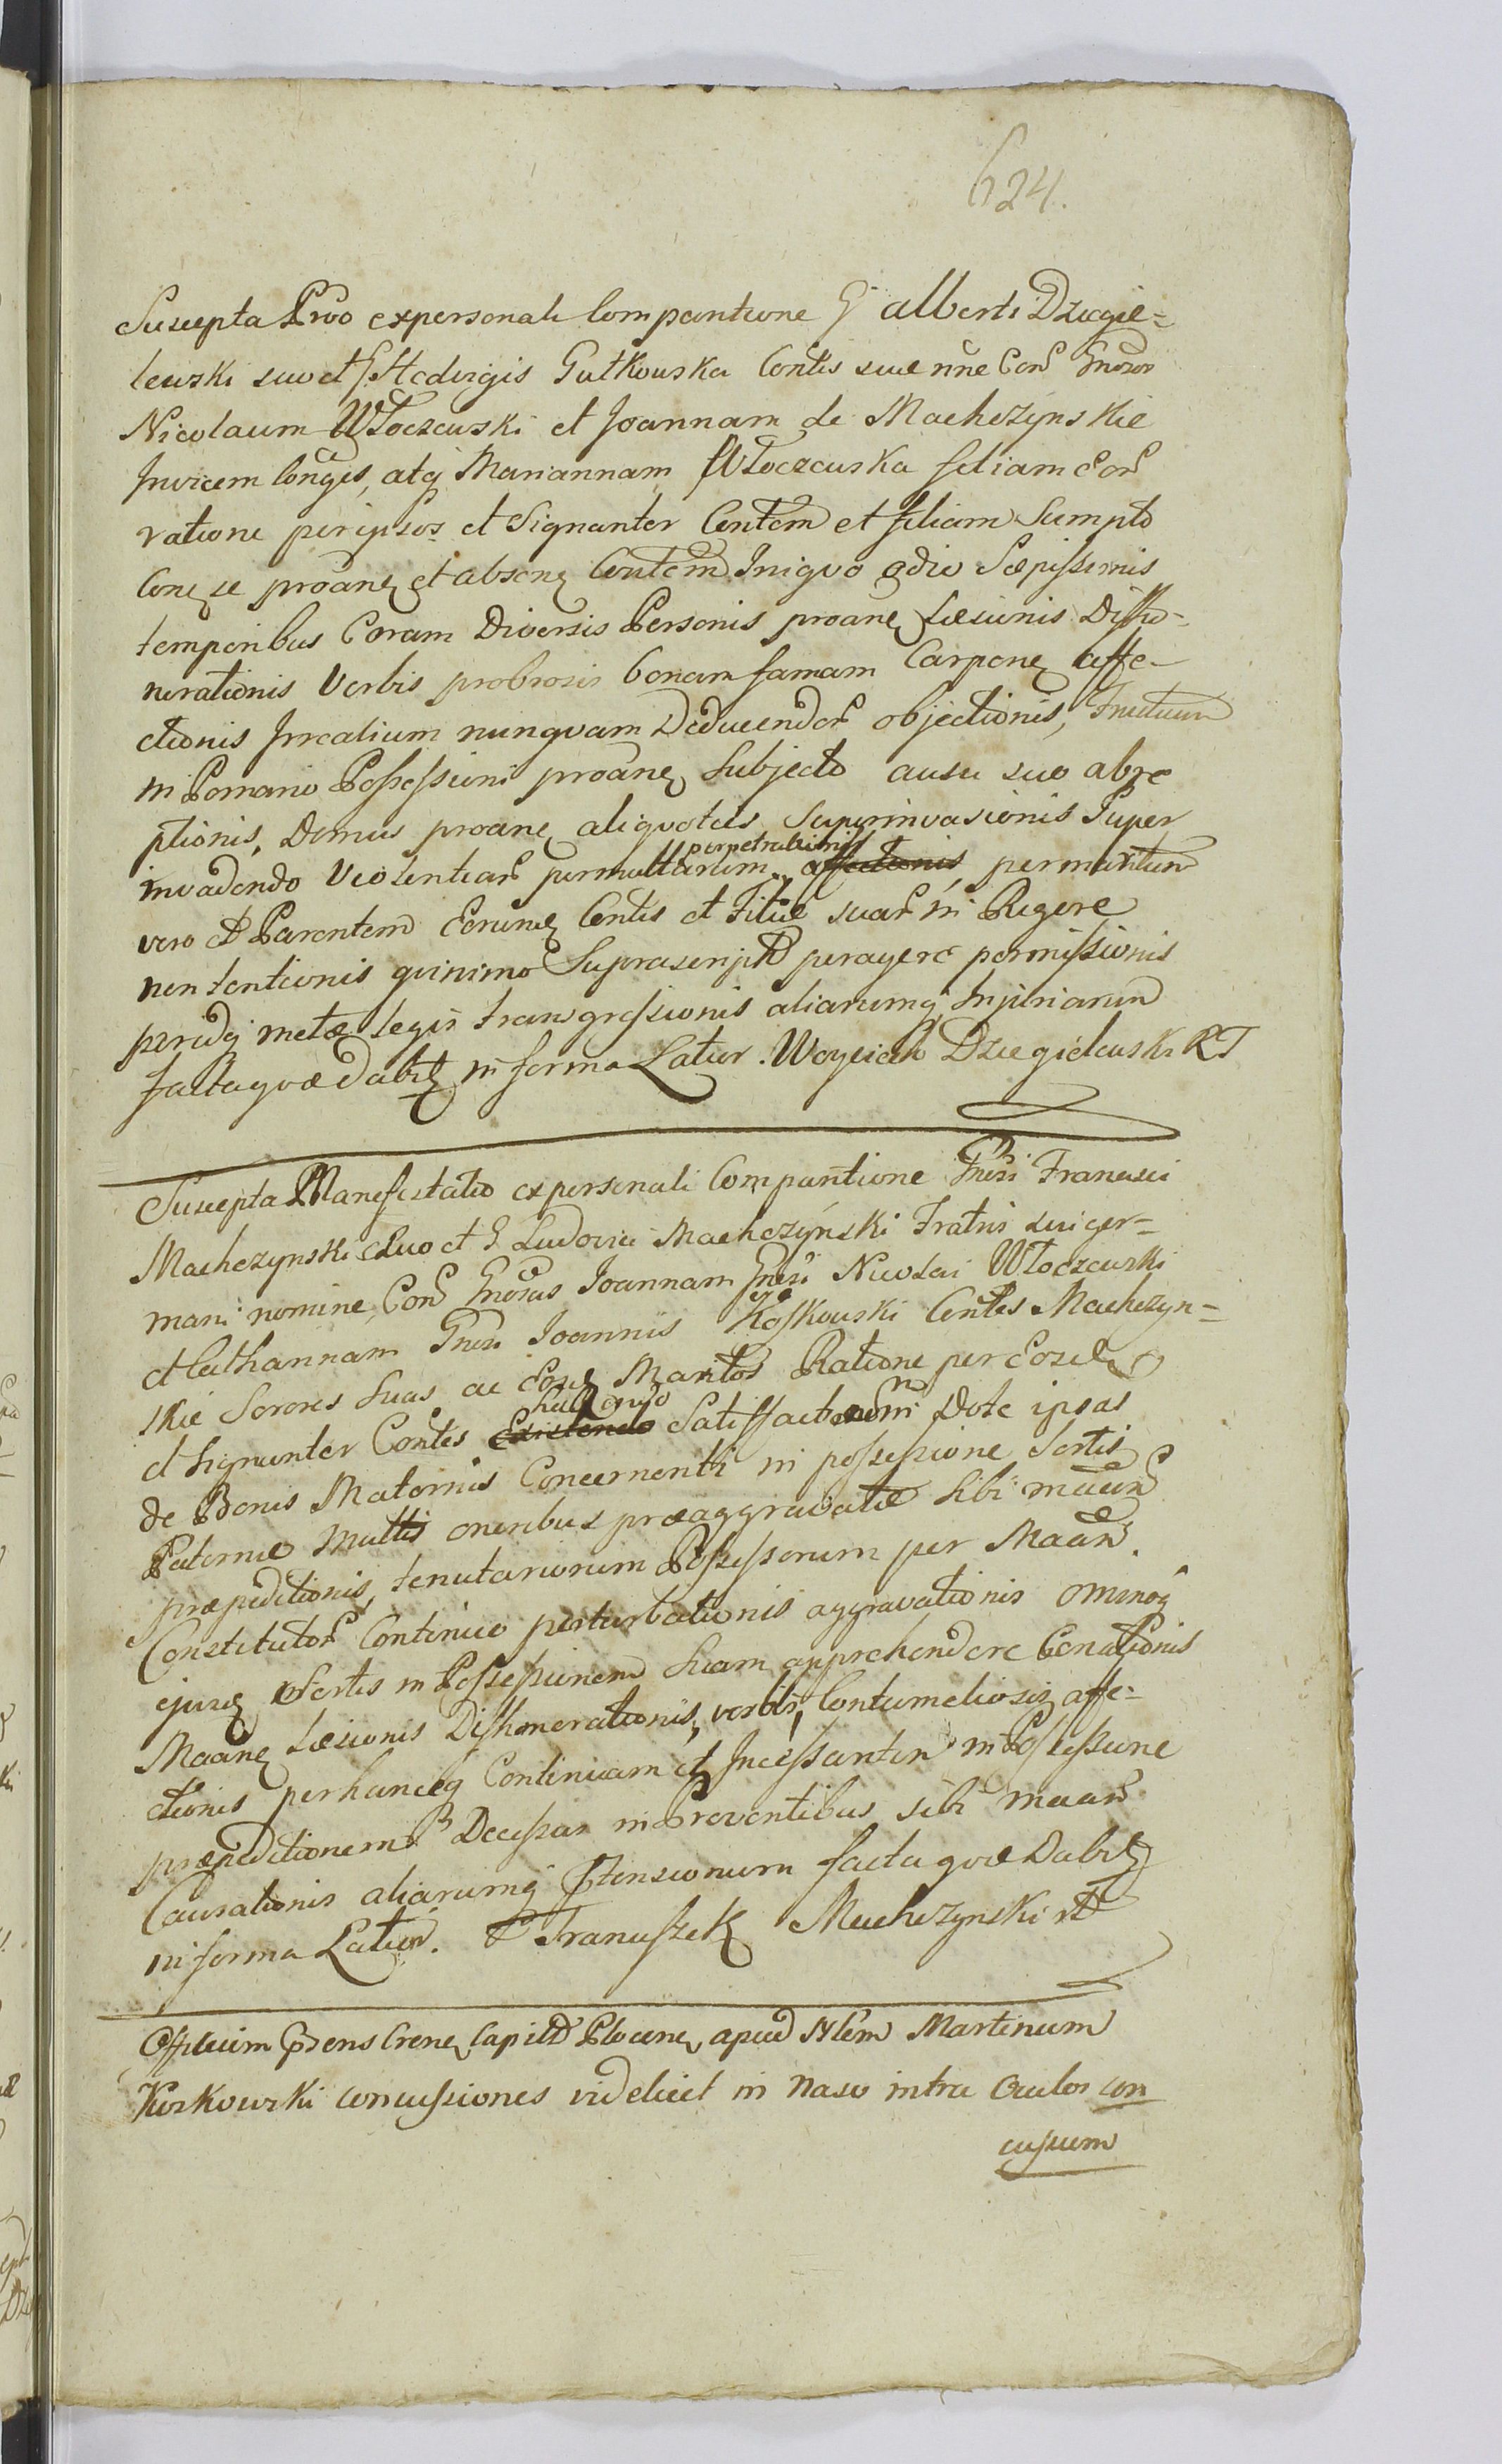 624.
Suscepta Prõo ex personali Comparitione G. Alberti Dzięgie=
lewski suo et G. Hedvigis Gutkowska Contis suae nne Con͂ Gnosos
Nicolaum Włoczewski et Joannam de Machczynskie
Invicem Conges, atq Mariannam Włoczewska filiam Eor͂
ratione per ipsos et Signanter Contem et filiam Sumpto
Con se proane et absene Contem Iniquo odio Sæpissimis
temporibus Coram Diversis Personis proane Læsionis Disho-
norationis Verbis probrosis bonam famam Carpene affe-
ctionis Irrealium nunquam Deducendor͂ objectionis, Fructuum
in Pomario Possessioni proane Subjecto ausu suo abre
ptionis, Domus proane aliquoties Superinvasionis Super
invadendo Violentiar͂ permultarum perpetrationis affectionis per maritum
vero et Parentem Eorune Contis et Filiæ suar͂ in Rigore
non tentionis quinimo Suprascripta peragere permissionis
perudq metæ legis transgressionis aliarumq Injuriarum
facta quæ dabit in forma Latur. Woyciech Dzięgielewski RT
Suscepta Manifestatio ex personali Comparitione Gnesi Francisci
Machczynski Suo et G Ludovici Machczynski Fratris sui ger=
mani nomine Con͂ Gnosas Joannam Gnesi Nicolai Włoczewski
et Catharinam Gnesi Joannis Koskowski Contes Machczyn=
skie Sorores Suas ac Eore Maritos Ratione per Eosdem
et Signanter Contes Existendo Satisfactum in Dote ipsas
de Bonis Maternis Concernenti in possessione Sortis
Paternæ multis oneribus præaggravatæ Sibi maan͂
præpeditionis, tenutariorum Possessorum per Maan͂
Constitutor͂ Continuo perturbationis aggravationis ominoq
ejusd Sortis in Possessionem Suam apprehendere Conationis
Maane Læsionis Dishonorationis, verbis, Contumeliosis affe=
ctionis per hancq Continuam et Incessanter in Possessione
præpeditionem Decessar in Proventibus sibi maan͂
Causationis aliarumq Ptensionum facta quæ Dabit
in forma Latur. Franciszek Machczynski
Officium Pens Crene Capitle Plocene apud Nlem Martinum
Koskowski concussiones videlicet in Naso intra Oculos con
cussum